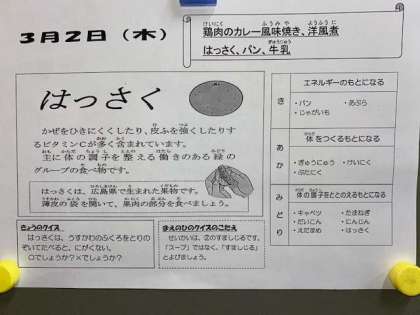 3月2日（木）
鶏肉のカレー風味焼き、洋風煮
はっさく、パン、牛乳
はっさく
かぜをひきにくくしたり、皮ふを強くしたりす
るビタミンCが多く含まれています。
主に体の調子を整える働きのある緑の
グループの食べ物です。
はっさくは、広島県で生まれた果物です。
薄皮の袋を開いて、果肉の部分を食べましょう。
きょうのクイズ
はっさくは、うすかわのふくろをとりの
ぞいてたべると、にがくない。
○でしょうか？×でしょうか？
まえのひのクイズのこたえ
せいかいは、②のすましじるです。
「スープ」ではなく、「すましじる」
とよびましょう。
き
エネルギーのもとになる
・パン ・あぶら
・じゃがいも
あか
体をつくるもとになる
・ぎゅうにゅう ・けいにく
・ぶたにく
みどり
体の調子をととのえるもとになる
・キャベツ ・たまねぎ
・だいこん ・にんじん
・えだまめ ・はっさく